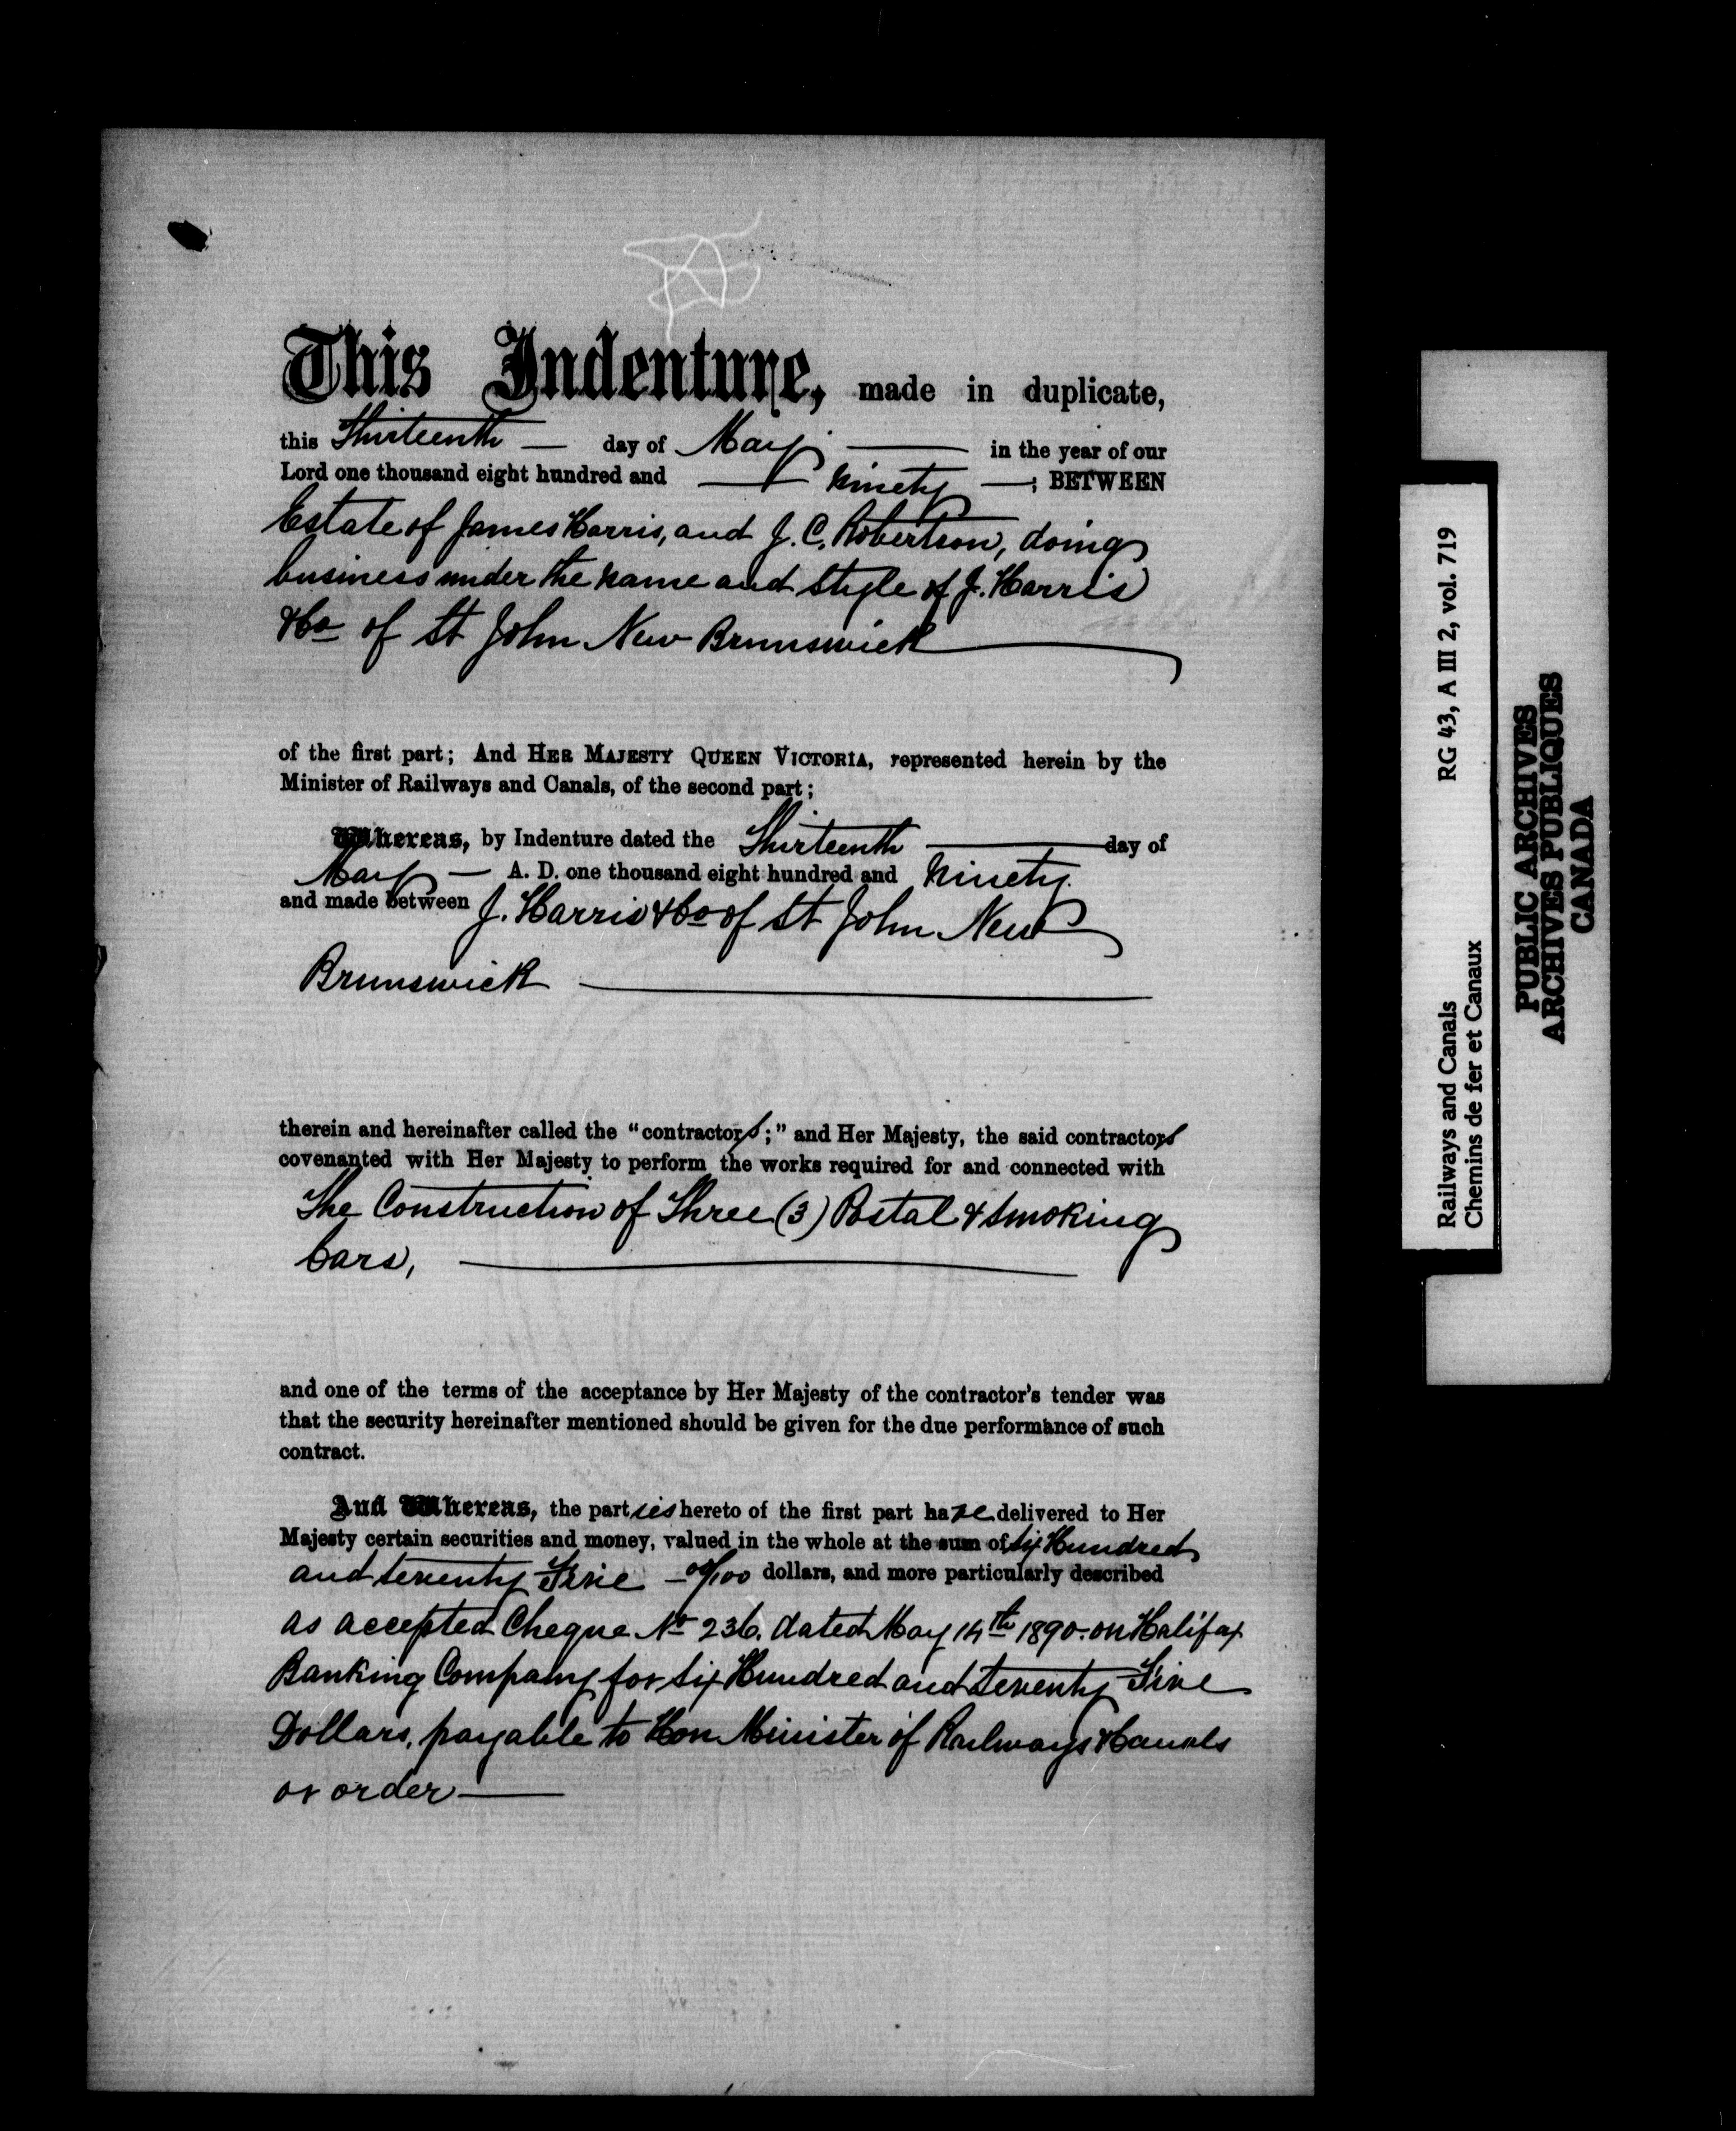 This Indenture, made in duplicate,
this Thirteenth — day of May — in the year of our
Lord one thousand eight hundred and — Ninety —; BETWEEN
Estate of James Harris, and J. C. Robertson, doing
business under the name and style of J. Harris
& Co of St John New Brunswick
of the first part; And HER MAJESTY QUEEN VICTORIA, represented herein by the
Minister of Railways and Canals, of the second part;
Whereas, by Indenture dated the Thirteenth — day of
May — A. D. one thousand eight hundred and Ninety.
and made between J. Harris & Co of St John New
Brunswick
therein and hereinafter called the "contractors;" and Her Majesty, the said contractors
covenanted with Her Majesty to perform the works required for and connected with
The Construction of Three (3) Postal & Smoking
Cars,
and one of the terms of the acceptance by Her Majesty of the contractor's tender was
that the security hereinafter mentioned should be given for the due performance of such
contract.
And Whereas, the parties hereto of the first part have delivered to Her
Majesty certain securities and money, valued in the whole at the sum of Six Hundred
and Seventy Five — 00/100 dollars, and more particularly described
as accepted Cheque No 236. dated May 14th 1890. on Halifax
Banking Company for Six Hundred and Seventy Five
Dollars, payable to Hon Minister of Railways & Canals
or order —
RG 43, A III 2, vol. 719
Railways and Canals
Chemins de fer et Canaux
PUBLIC ARCHIVES
ARCHIVES PUBLIQUES
CANADA